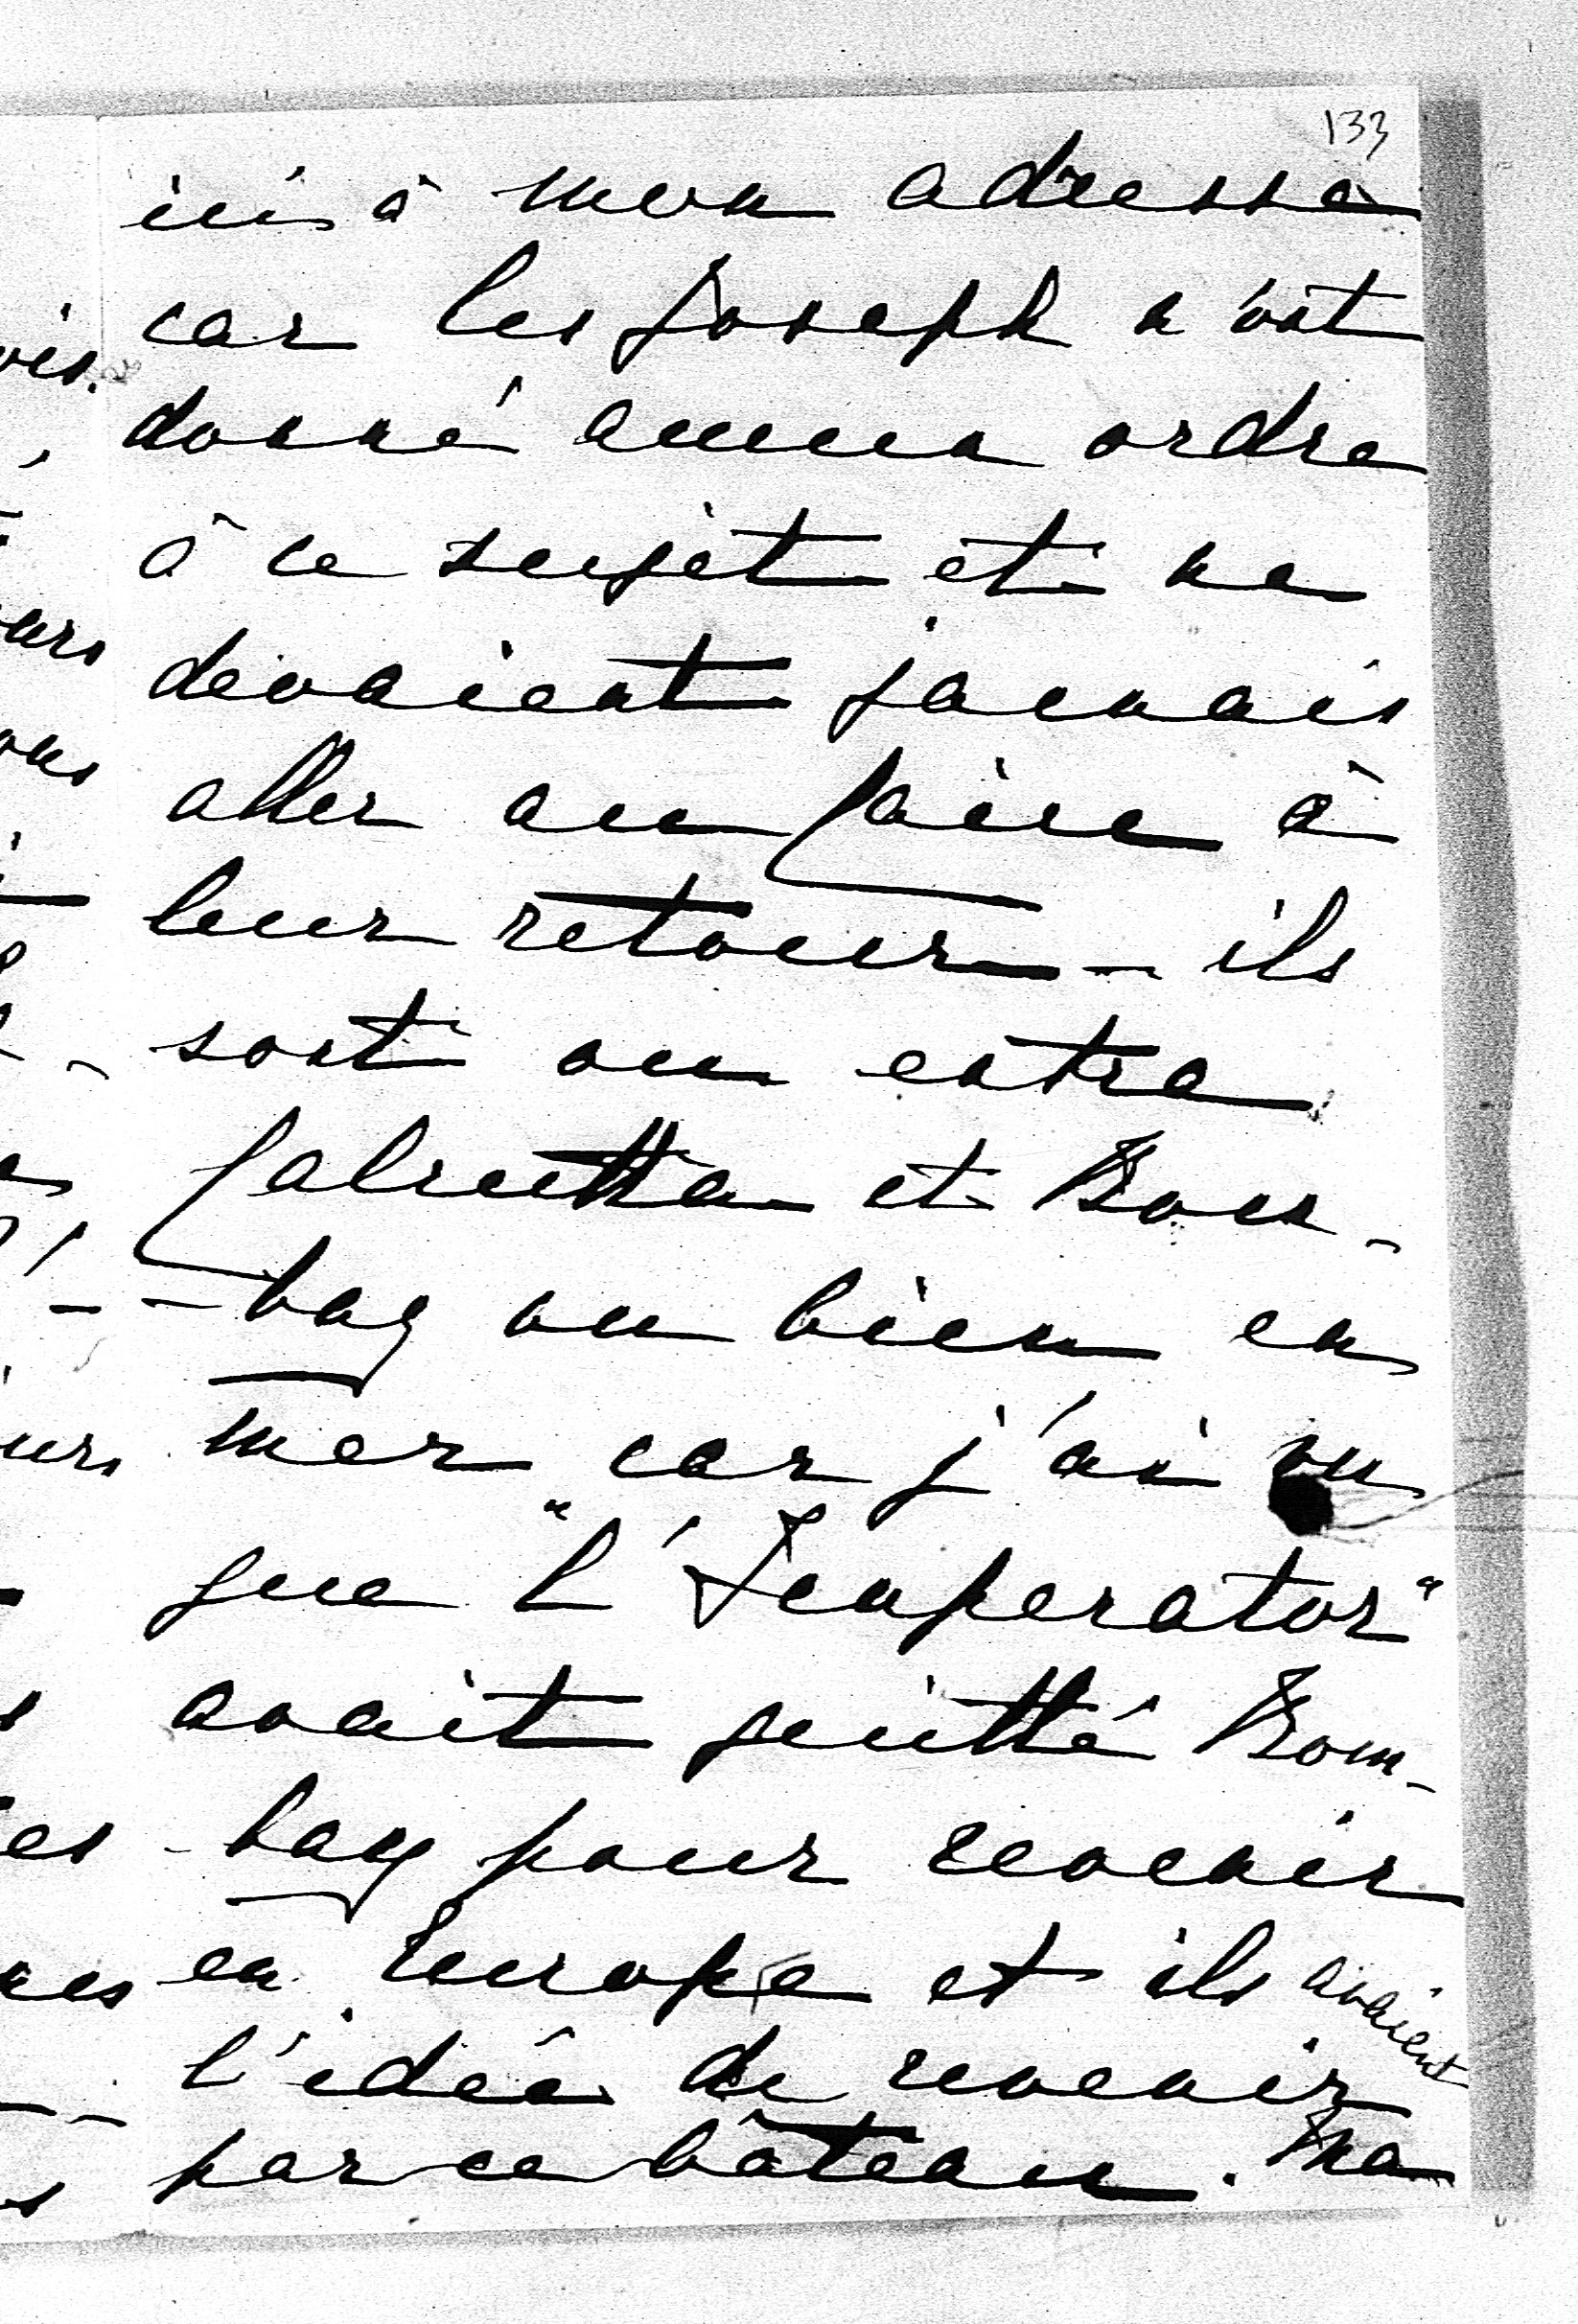 133
ici à mon adresse
car les Joseph n'ont
donné aucun ordre
à ce sujet et ne
devaient jamais
aller au Caire à
leur retour - ils
sont ou entre
Calcutta et Bom-
-bay ou bien en
mer car j'ai vu
que "l'Imperator"
avait quitté Bom-
-bay pour revenir
en Europe et ils avaient
l'idée de revenir
par ce bâteau. Ma